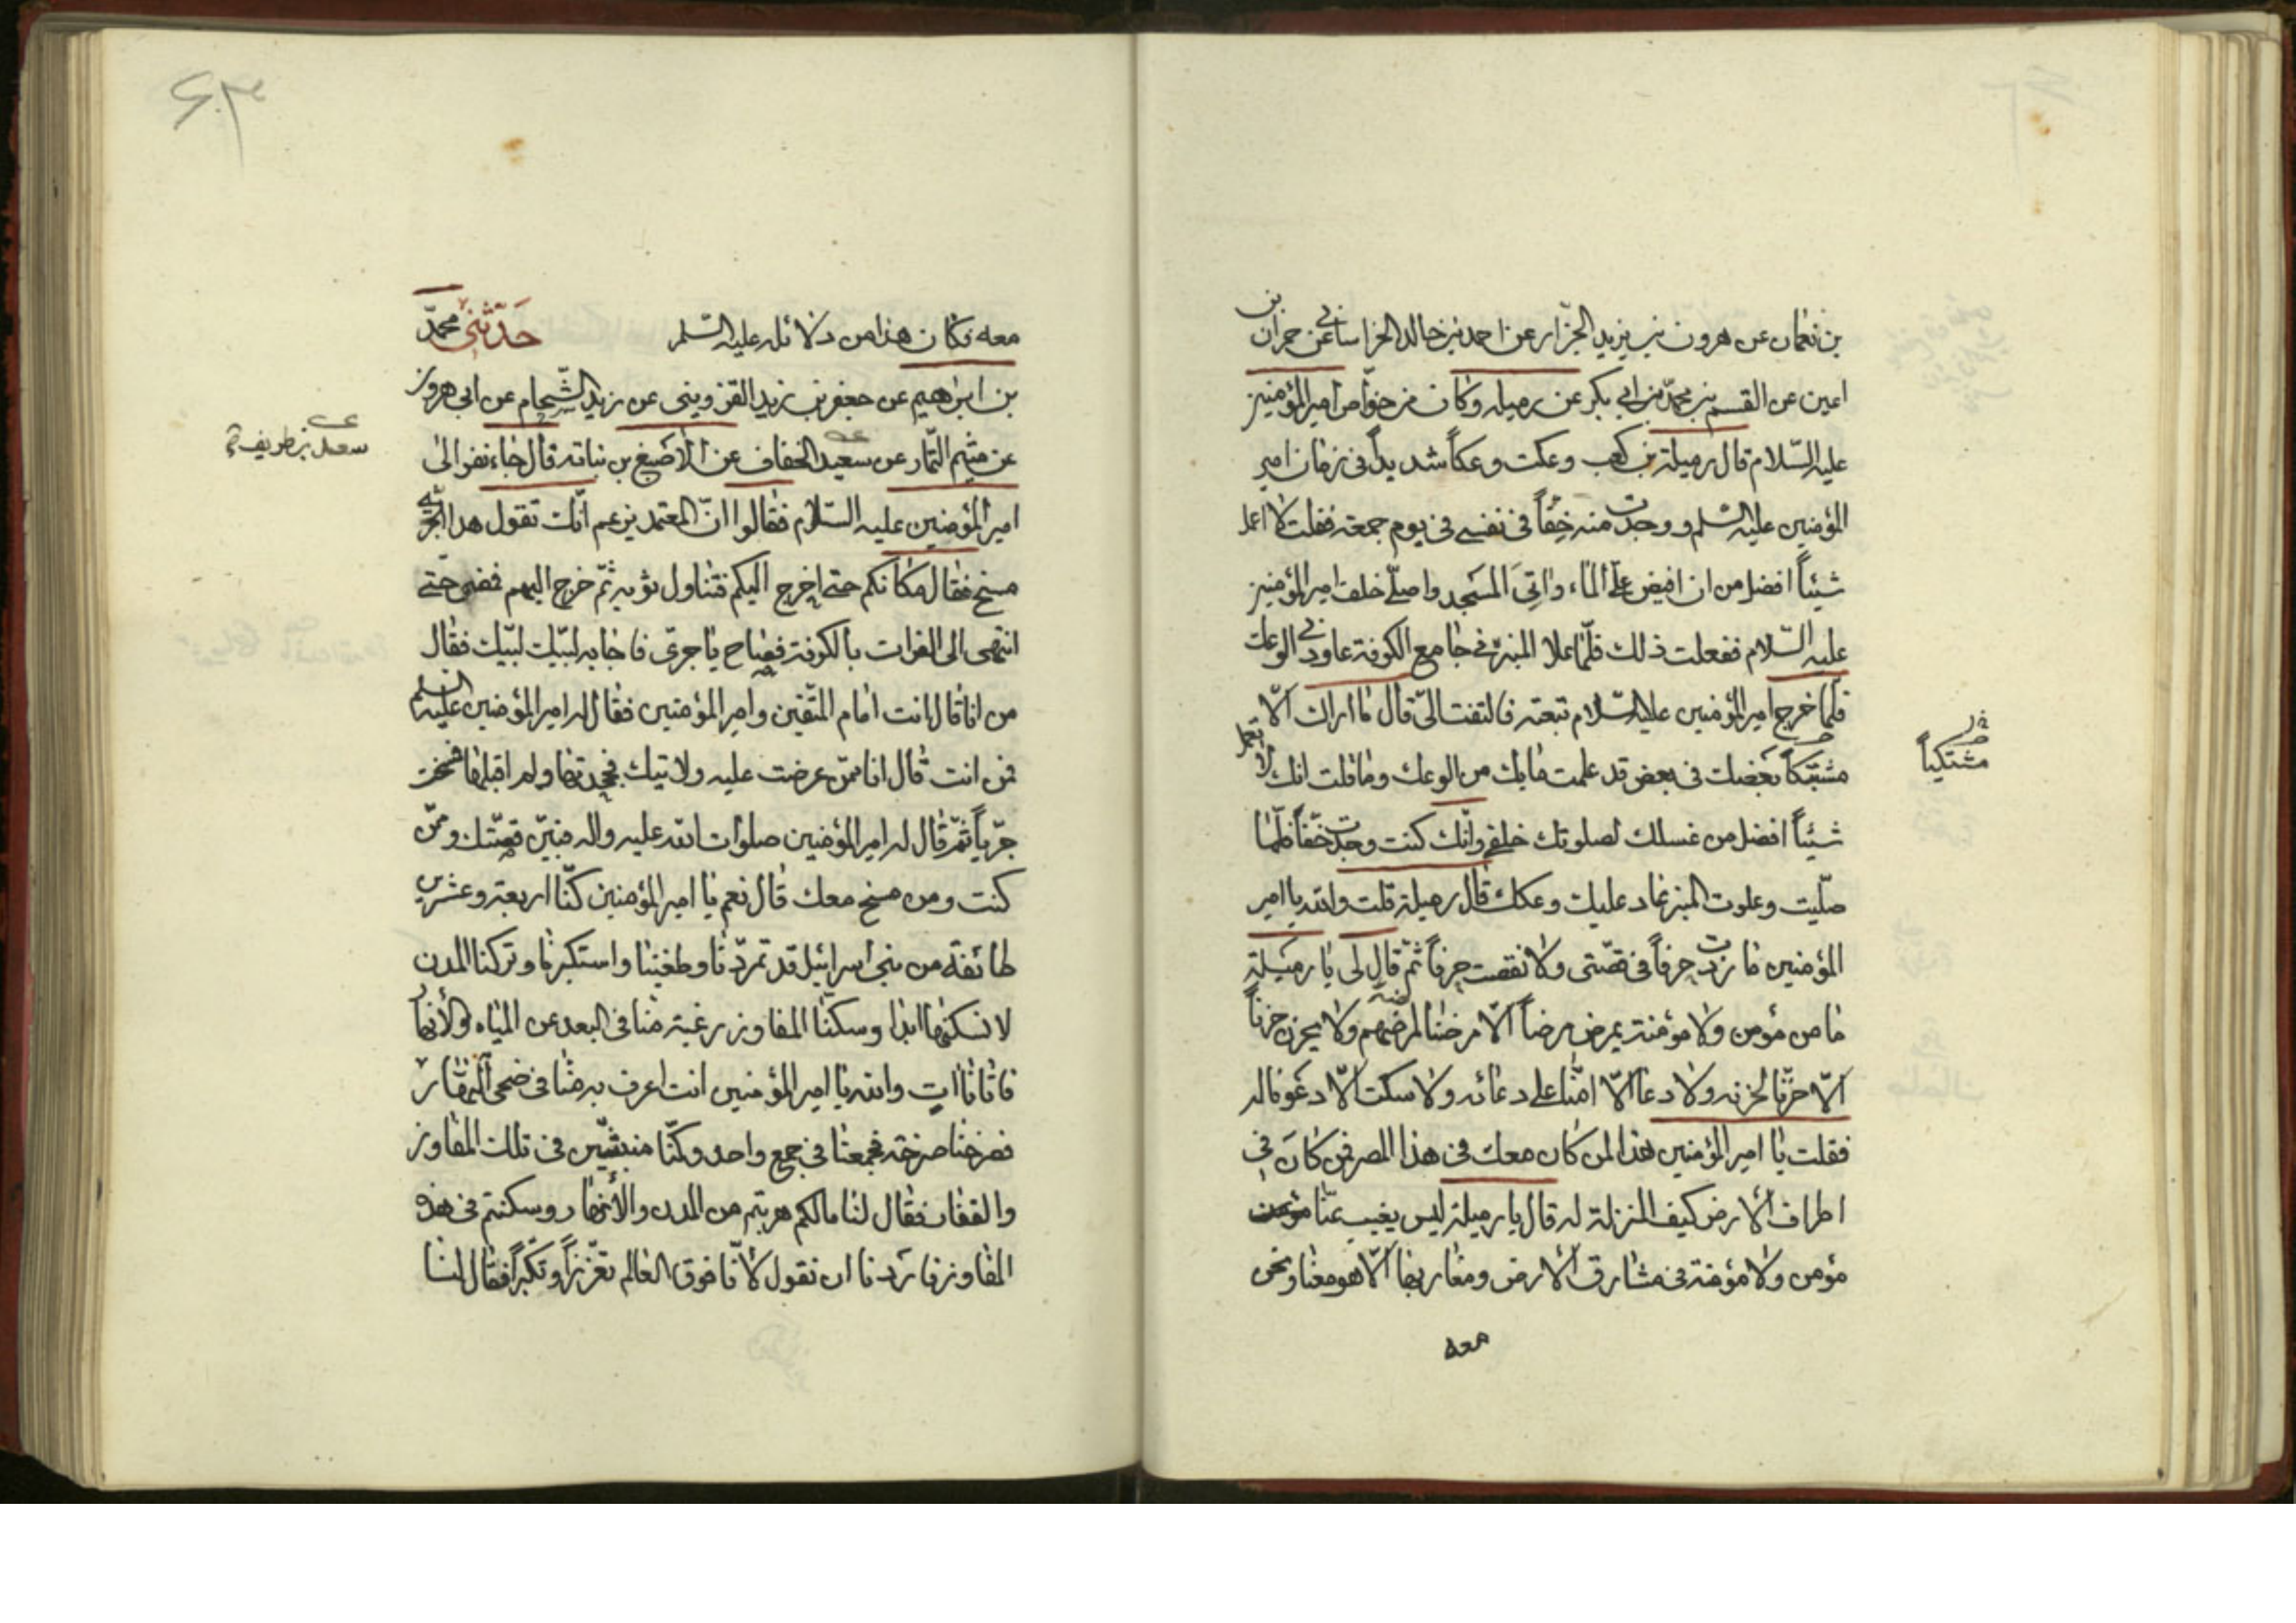 بن نعمان عن هرون بن يزيد الجزّار عن احمد بن خالد الخراساني عن حمران بن
اعين عن القسم بن محمّد بن ابي بكر عن رميله وكان من خواصّ امير المؤمنين
عليه السّلام قال رميلة بن كعب وعكت وعكاً شديداً في زمان امير
المؤمنين عليه السّلم ووجدت منه خفّاً في نفسي في يوم جمعة فقلت لا اعمل
شيئاً افضل من ان افيض علىّ الماء واتي المسجد واصلّي خلف امير المؤمنين
عليه السّلام ففعلت ذلك فلمّا علا المنبر في جامع الكوفة عاودني الوعك
فلمّا خرج امير المؤمنين عليه السّلام تبعته فالتفت الىّ قال ما اراك الّا
مشتبكاً بعضك في بعض قد علمت ما بك من الوعك وما قلت انك لا تعمل
شيئاً افضل من غسلك لصلوتك خلفي وانّك كنت وجدت خفّاً فلمّا
صلّيت وعلوت المنبر عاد عليك وعكك قال رميلة قلت والله يا امير
المؤمنين ما زدت حرفاً في قصّتي ولا نقصت حرفاً ثمّ قال لي يا رميلة
ما من مؤمن ولا مؤمنة يمرض مرضاً الّا مرضنا لمرضهم ولا يحزن حزناً
الّا حزنّا لحزنه ولا دعا الّا امّنا على دعائه ولا سكت الّا دعونا له
فقلت يا امير المؤمنين هذا لمن كان معك في هذا المصر فمن كان في
اطراف الأرض كيف المنزلة له قال يا رميلة ليس يغيب عنّا
مؤمن ولا مؤمنة في مشارق الأرض ومغاربها الّا هو معنا ونحن
معه
مشتكياً
معه فكان هذا من دلائله عليه السّلم حدّثنى محمّد
بن ابرهيم عن جعفر بن زيد القزويني عن زيد الشّحام عن ابي هرون
عن ميثم التّمار عن سعيد الخفاف عن الأصبغ بن نباته قال جاء نفر الى
امير المؤمنين عليه السّلام فقالوا انّ المعتمد يزعم انّك تقول هذا الجرّي
مسخ فقال مكانكم حتى اخرج اليكم فتناول ثوبه ثمّ خرج اليهم فمضى حتى
انتهى الى الفرات بالكوفة فصاح يا جرىّ فاجابه لبّيك لبّيك فقال
من انا قال انت امام المتّقين وامير المؤمنين فقال له امير المؤمنين عليه السلم
فمن انت قال انا ممّن عرضت عليه ولايتك فجحدتها ولم اقبلها فمسخت
جرّياً ثمّ قال له امير المؤمنين صلوات الله عليه واله فبيّن قصّتك وممّن
كنت ومن مسخ معك قال نعم يا امير المؤمنين كنّا اربعة وعشرين
طائفة من بني اسرائيل قد تمرّدنا وطغينا واستكبرنا وتركنا المدن
لا نسكنها ابدا وسكنّا المفاوز رغبة منّا في البعد عن المياه والأنهار
فاتانا ات والله يا امير المؤمنين انت اعرف به منّا في ضحى النهار
فصرخنا صرخة فجمعنا في جمع واحد وكنّا منبثّين في تلك المفاوز
والقفار فقال لنا مالكم هربتم من المدن والأنهار وسكنتم في هذه
المفاوز فاردنا ان نقول لأنّا فوق العالم تعزّزاً وتكبّراً فقال لنا
سعد بن طريف